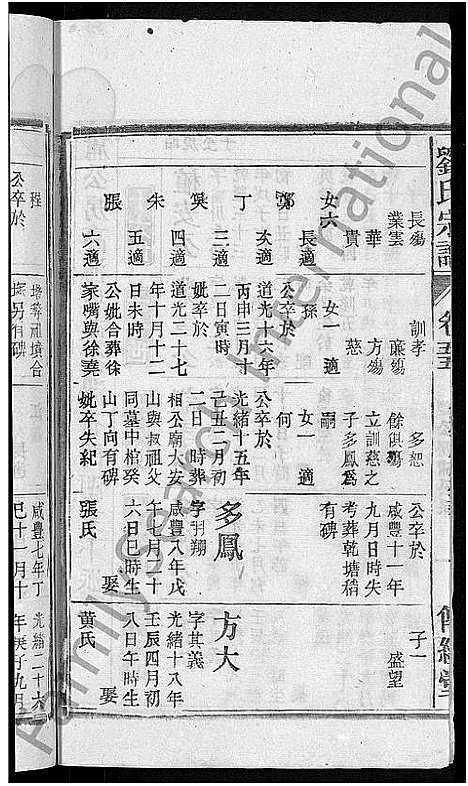 劉氏宗譜
卷五
長殤 業雲 華 貴 女六 長適 鄭 次適 丁 三適 樊 四適 朱 五適 張 六適
訓孝 廉殤 方殤 慈 女一適 孫
公卒於 道光十六年 丙申三月十 二日寅時 妣卒於 道光二十七 年十月十二 日未時 公妣合葬徐 家嘴與徐堯
多恕 餘俱殤 立訓慈之 子多鳳爲 嗣 女一適 何
公卒於 光緒十五年 己丑二月初 二日時葬 相公廟大安 山與叔祖父 同墓中棺癸 山丁向有碑 妣卒失紀
公卒於 咸豐十一年 九月日時失 考葬乾塘稻 有碑
多鳳 字羽翔 咸豐八年戊 午七月二十 六日巳時生 娶 張氏
子一 盛望
方大 字其義 光緒十八年 壬辰四月初 八日午時生 娶 黃氏
程 公卒於
咸豐七年丁 巳十一月十
光緒二十六 年庚子九月
FamilySearch International